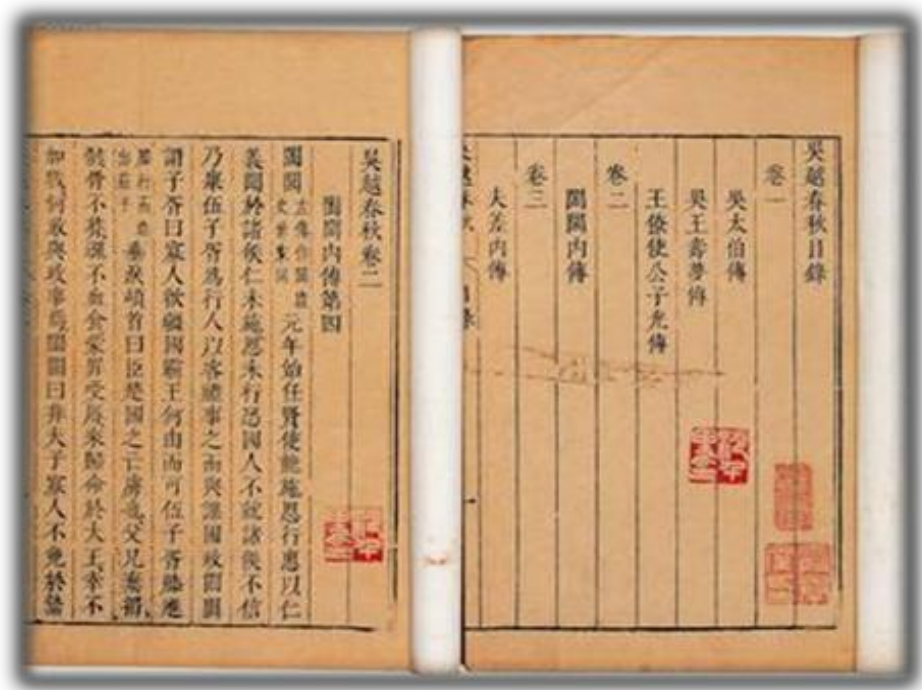 吳越春秋目錄
卷一
吳太伯傳
吳王壽夢傳
王僚使公子光傳
卷二
闔閭內傳
卷三
夫差內傳
吳越春秋 目錄
吳越春秋卷二
闔閭內傳第四
闔閭 左傳作闔廬 元年始任賢使能施恩行惠以仁
義聞於諸侯仁未施恩未行恐國人不就諸侯不信
乃舉伍子胥爲行人以客禮事之而與謀國政闔閭
謂子胥曰寡人欲彊國霸王何由而可伍子胥膝進
垂淚頓首曰臣楚國之亡虜也父兄棄捐
骸骨不葬魂不血食蒙罪受辱來歸命於大王幸不
加戮何敢與政事焉闔閭曰非夫子寡人不免於縶